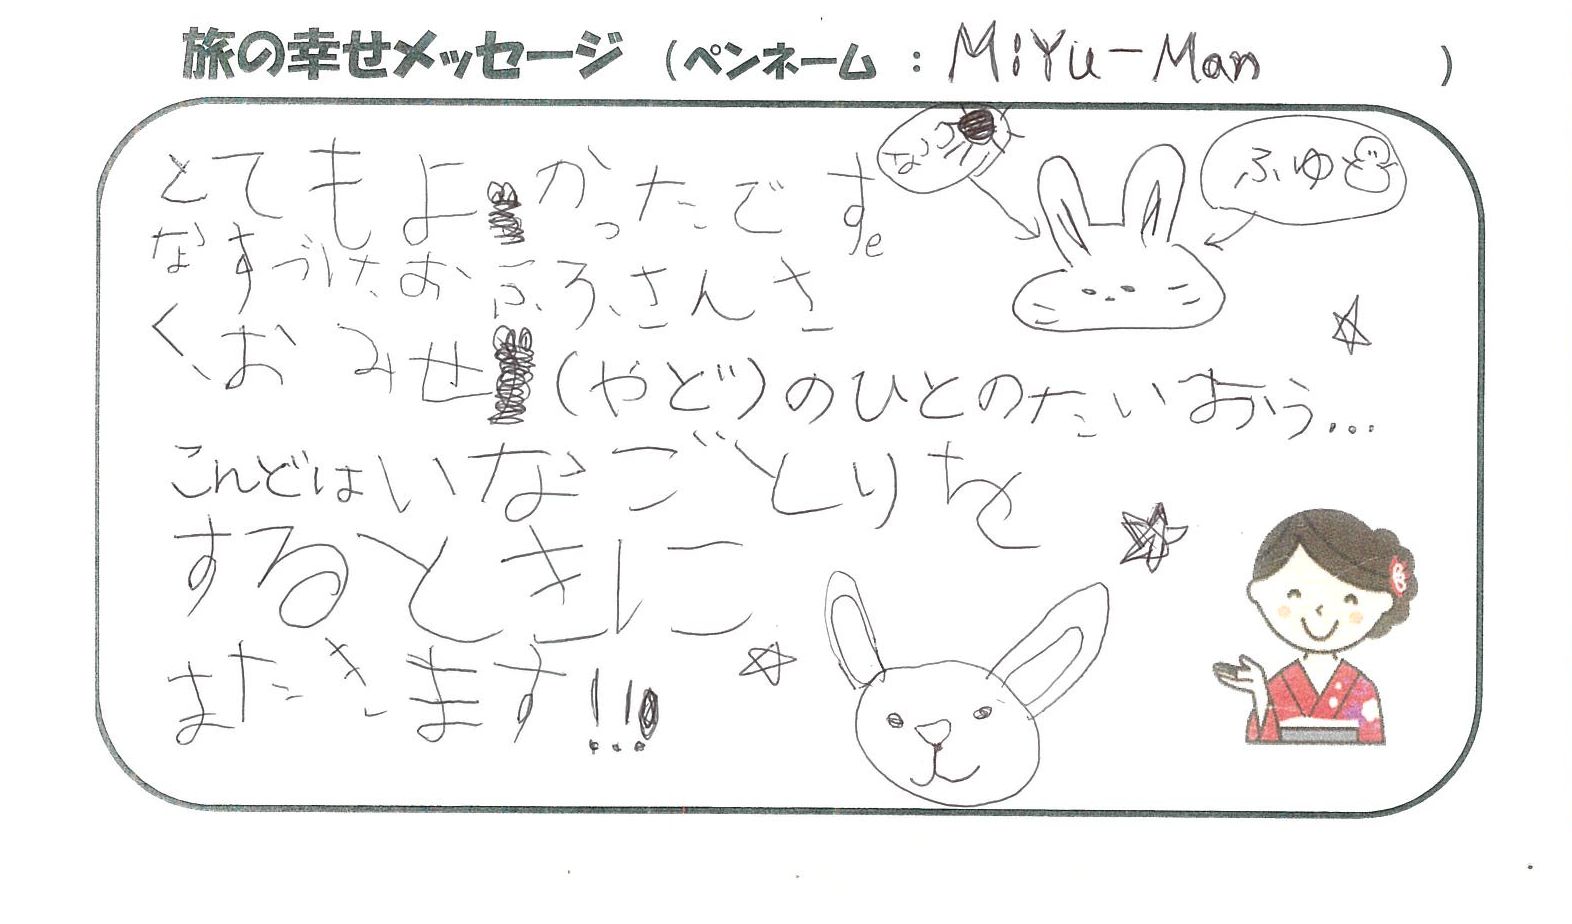 旅の幸せメッセージ (ペンネーム : MiYu-Man )
とてもよかったです。
なつ
ふゆ
なすづけ、おふろ、さんさ
く、おみせ(やど)のひとのたいおう...
こんどはいなごとりを
するときに
またきます!!!